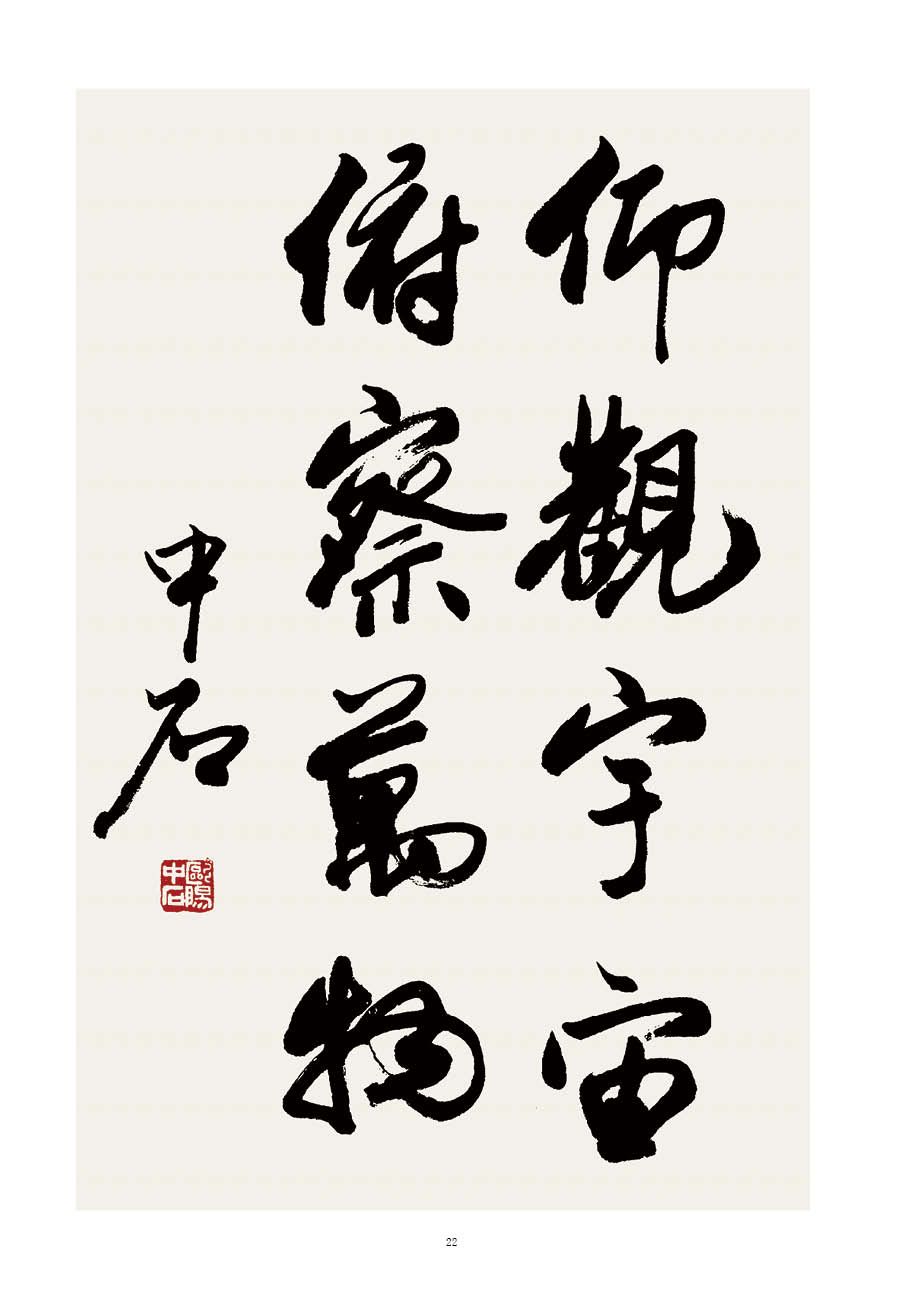 仰觀宇宙
俯察萬物
中石
歐陽
中石
22